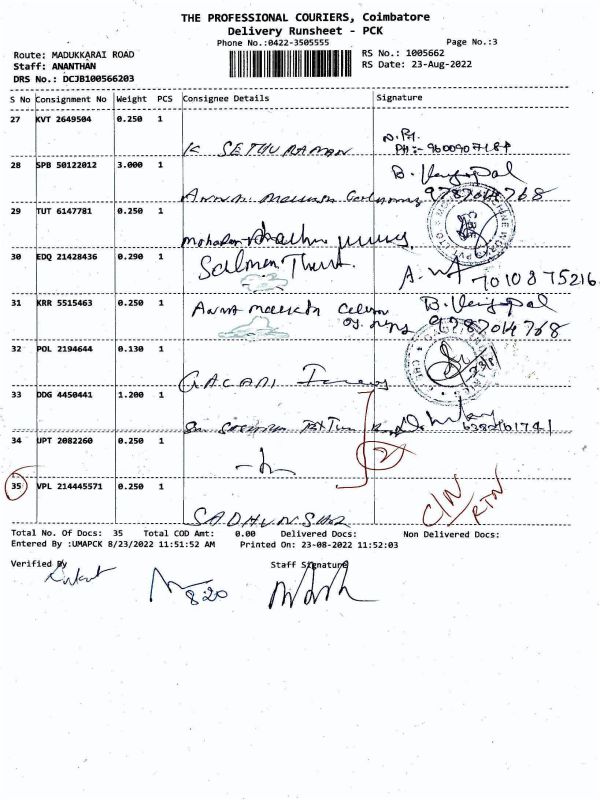 THE PROFESSIONAL COURIERS, Coimbatore
Delivery Runsheet - PCK
Phone No.:0422-3505555
Page No.:3
Route: MADUKKARAI ROAD
RS No.: 1005662
Staff: ANANTHAN
RS Date: 23-Aug-2022
DRS No.: DCJB100566203
S No Consignment No Weight PCS Consignee Details Signature
27 KVT 2649504 0.250 1
K SETHURAMAN
PH:- 9600907187
28 SPB 50122012 3.000 1
B. Venugopal
9787014768
29 TUT 6147781 0.250 1
30 EDQ 21428436 0.290 1
Salmon Thurst.
7010875216
31 KRR 5515463 0.250 1
B. Venugopal
9787014768
32 POL 2194644 0.130 1
33 DDG 4450441 1.200 1
34 UPT 2082260 0.250 1
2
35 VPL 214445571 0.250 1
C/N
RTN
Total No. Of Docs: 35 Total COD Amt: 0.00 Delivered Docs: Non Delivered Docs:
Entered By :UMAPCK 8/23/2022 11:51:52 AM Printed On: 23-08-2022 11:52:03
Verified By Staff Signature
8:20